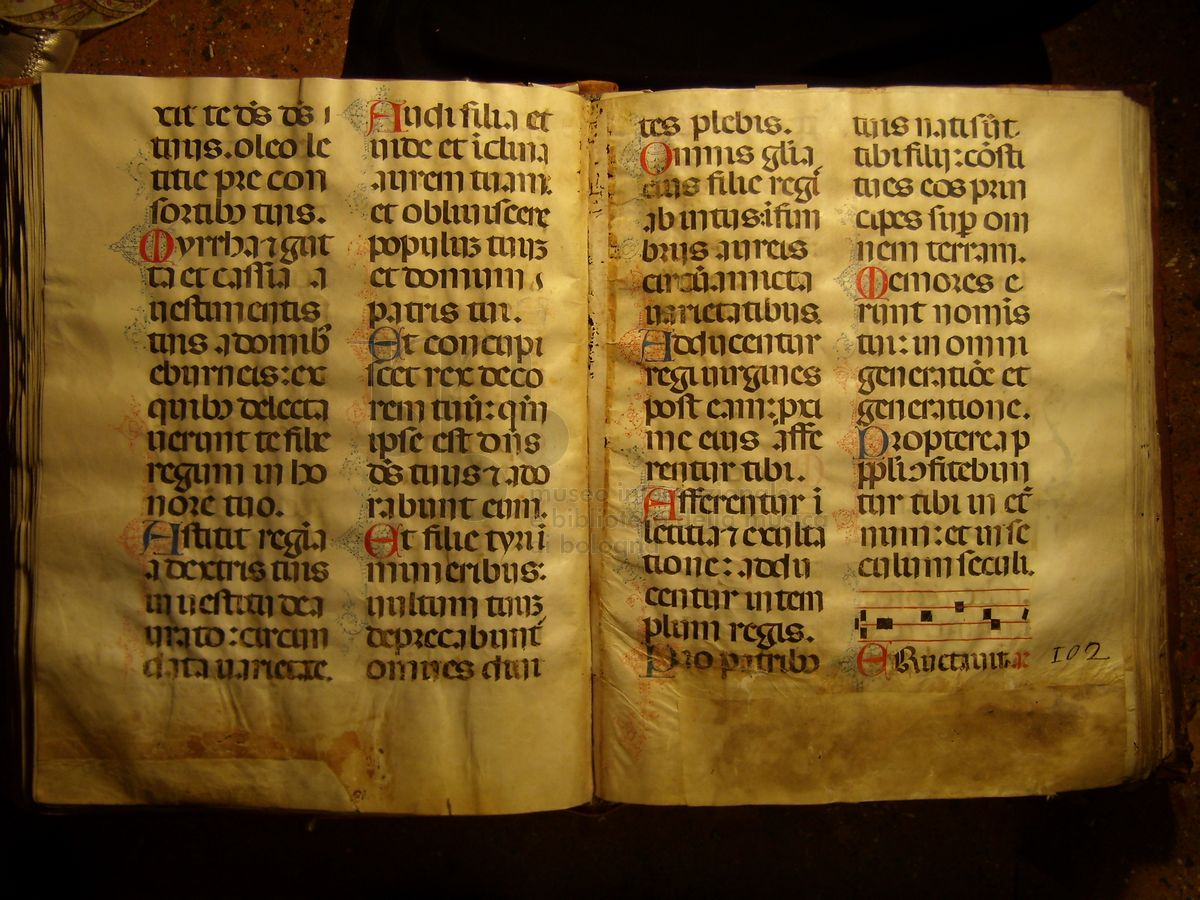 xit te ds ds
tuus. oleo le
titie pre con
sortibꝰ tuis.
Myrrha ⁊ gut
ta et cassia a
uestimentis
tuis a domibꝰ
eburneis: ex
quibꝰ delecta
uerunt te filie
regum in ho
nore tuo.
Astitit regīa
a dextris tuis
in uestitu dea
urato: circun
data uarietate.
Audi filia et
uide et īclina
aurem tuam:
et obliuiscere
populuꝫ tuuꝫ
et domum
patris tui.
Et concupi
scet rex deco
rem tuū: qm̄
ipse est dn̄s
ds tuus ⁊ ado
rabunt eum.
Et filie tyri ī
muneribus:
uultum tuuꝫ
deprecabunt̄
omnes diui
tes plebis.
Omnis glīa
eius filie regī
ab intus: ī fim
brijs aureis
circūamicta
uarietatibus.
Adducentur
regi uirgines
post eam: pxi
me eius affe
rentur tibi.
Afferentur ī
letitia ⁊ exulta
tione: addu
centur in tem
plum regis.
Pro patribꝰ
tuis nati sūt
tibi filij: cōsti
tues eos prin
cipes sup om
nem terram.
Memores e
runt nominis
tui: in omni
generatiōe et
generatione.
Propterea p
ppli ↄfitebun
tur tibi in et̄
num: et in se
culum seculi.
Eructauit
102
museo inter
biblioteca
di bologna